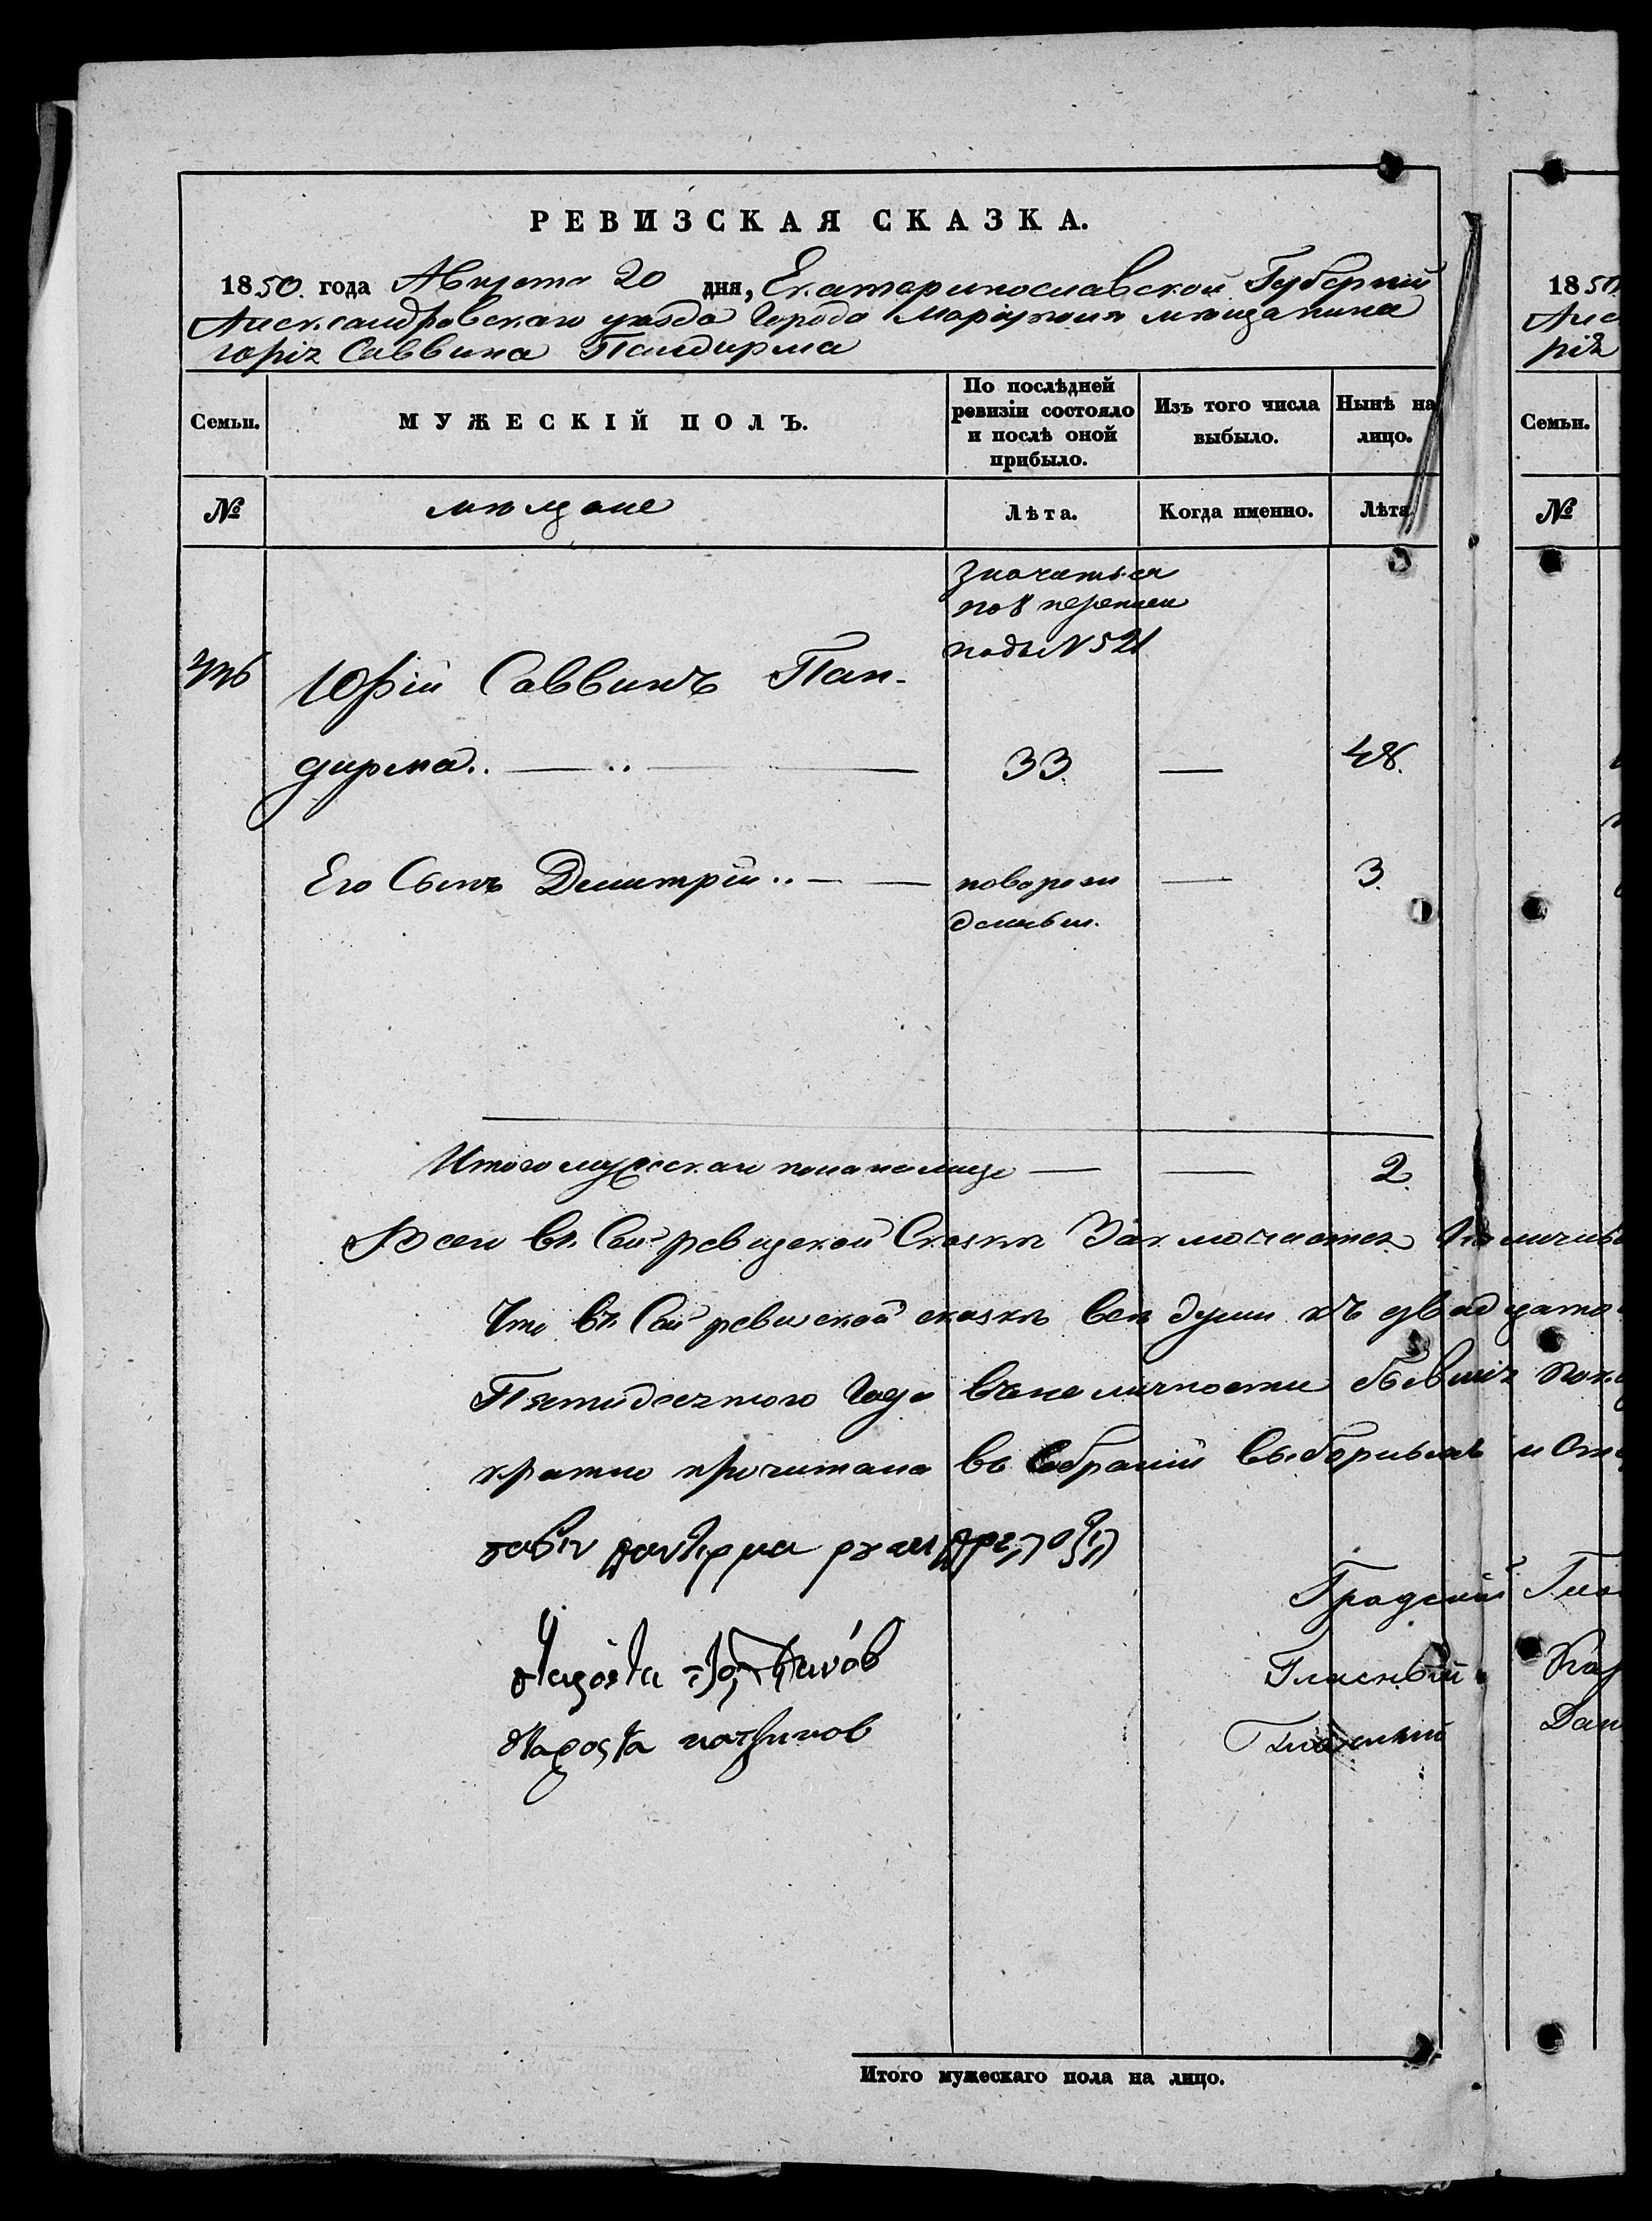 РЕВИЗСКАЯ СКАЗКА.
1850. года Августа 20 дня, Екатеринославской Губерніи
Александровскаго уезда Города Маріуполя мѣщанина
Юрія Саввина Пандирма
Семьи.
МУЖЕСКІЙ ПОЛЪ.
По послѣдней ревизіи состояло и послѣ оной прибыло.
Изъ того числа выбыло.
Нынѣ на лицо.
№
мѣщане
Лѣта.
Когда именно.
Лѣта.
значиться
по 8 переписи
подъ N 521
Юрій Саввинъ Пан-
дирма.. — .. — 33. — 48.
Его Сынъ Димитрій.. — — — 3.
Итого мужескаго пола на лицо — — 2.
Всего въ Сей ревизской Сказкѣ Заключается
Что въ Сей ревизской сказкѣ всѣ души къ двадцато
Пятидесятого Года въ наличности бывшія
кратно прочитана въ Собраніи выборныхъ и
Градскій
Гласный
Гласный
Итого мужескаго пола на лицо.
1850
Семьи.
№